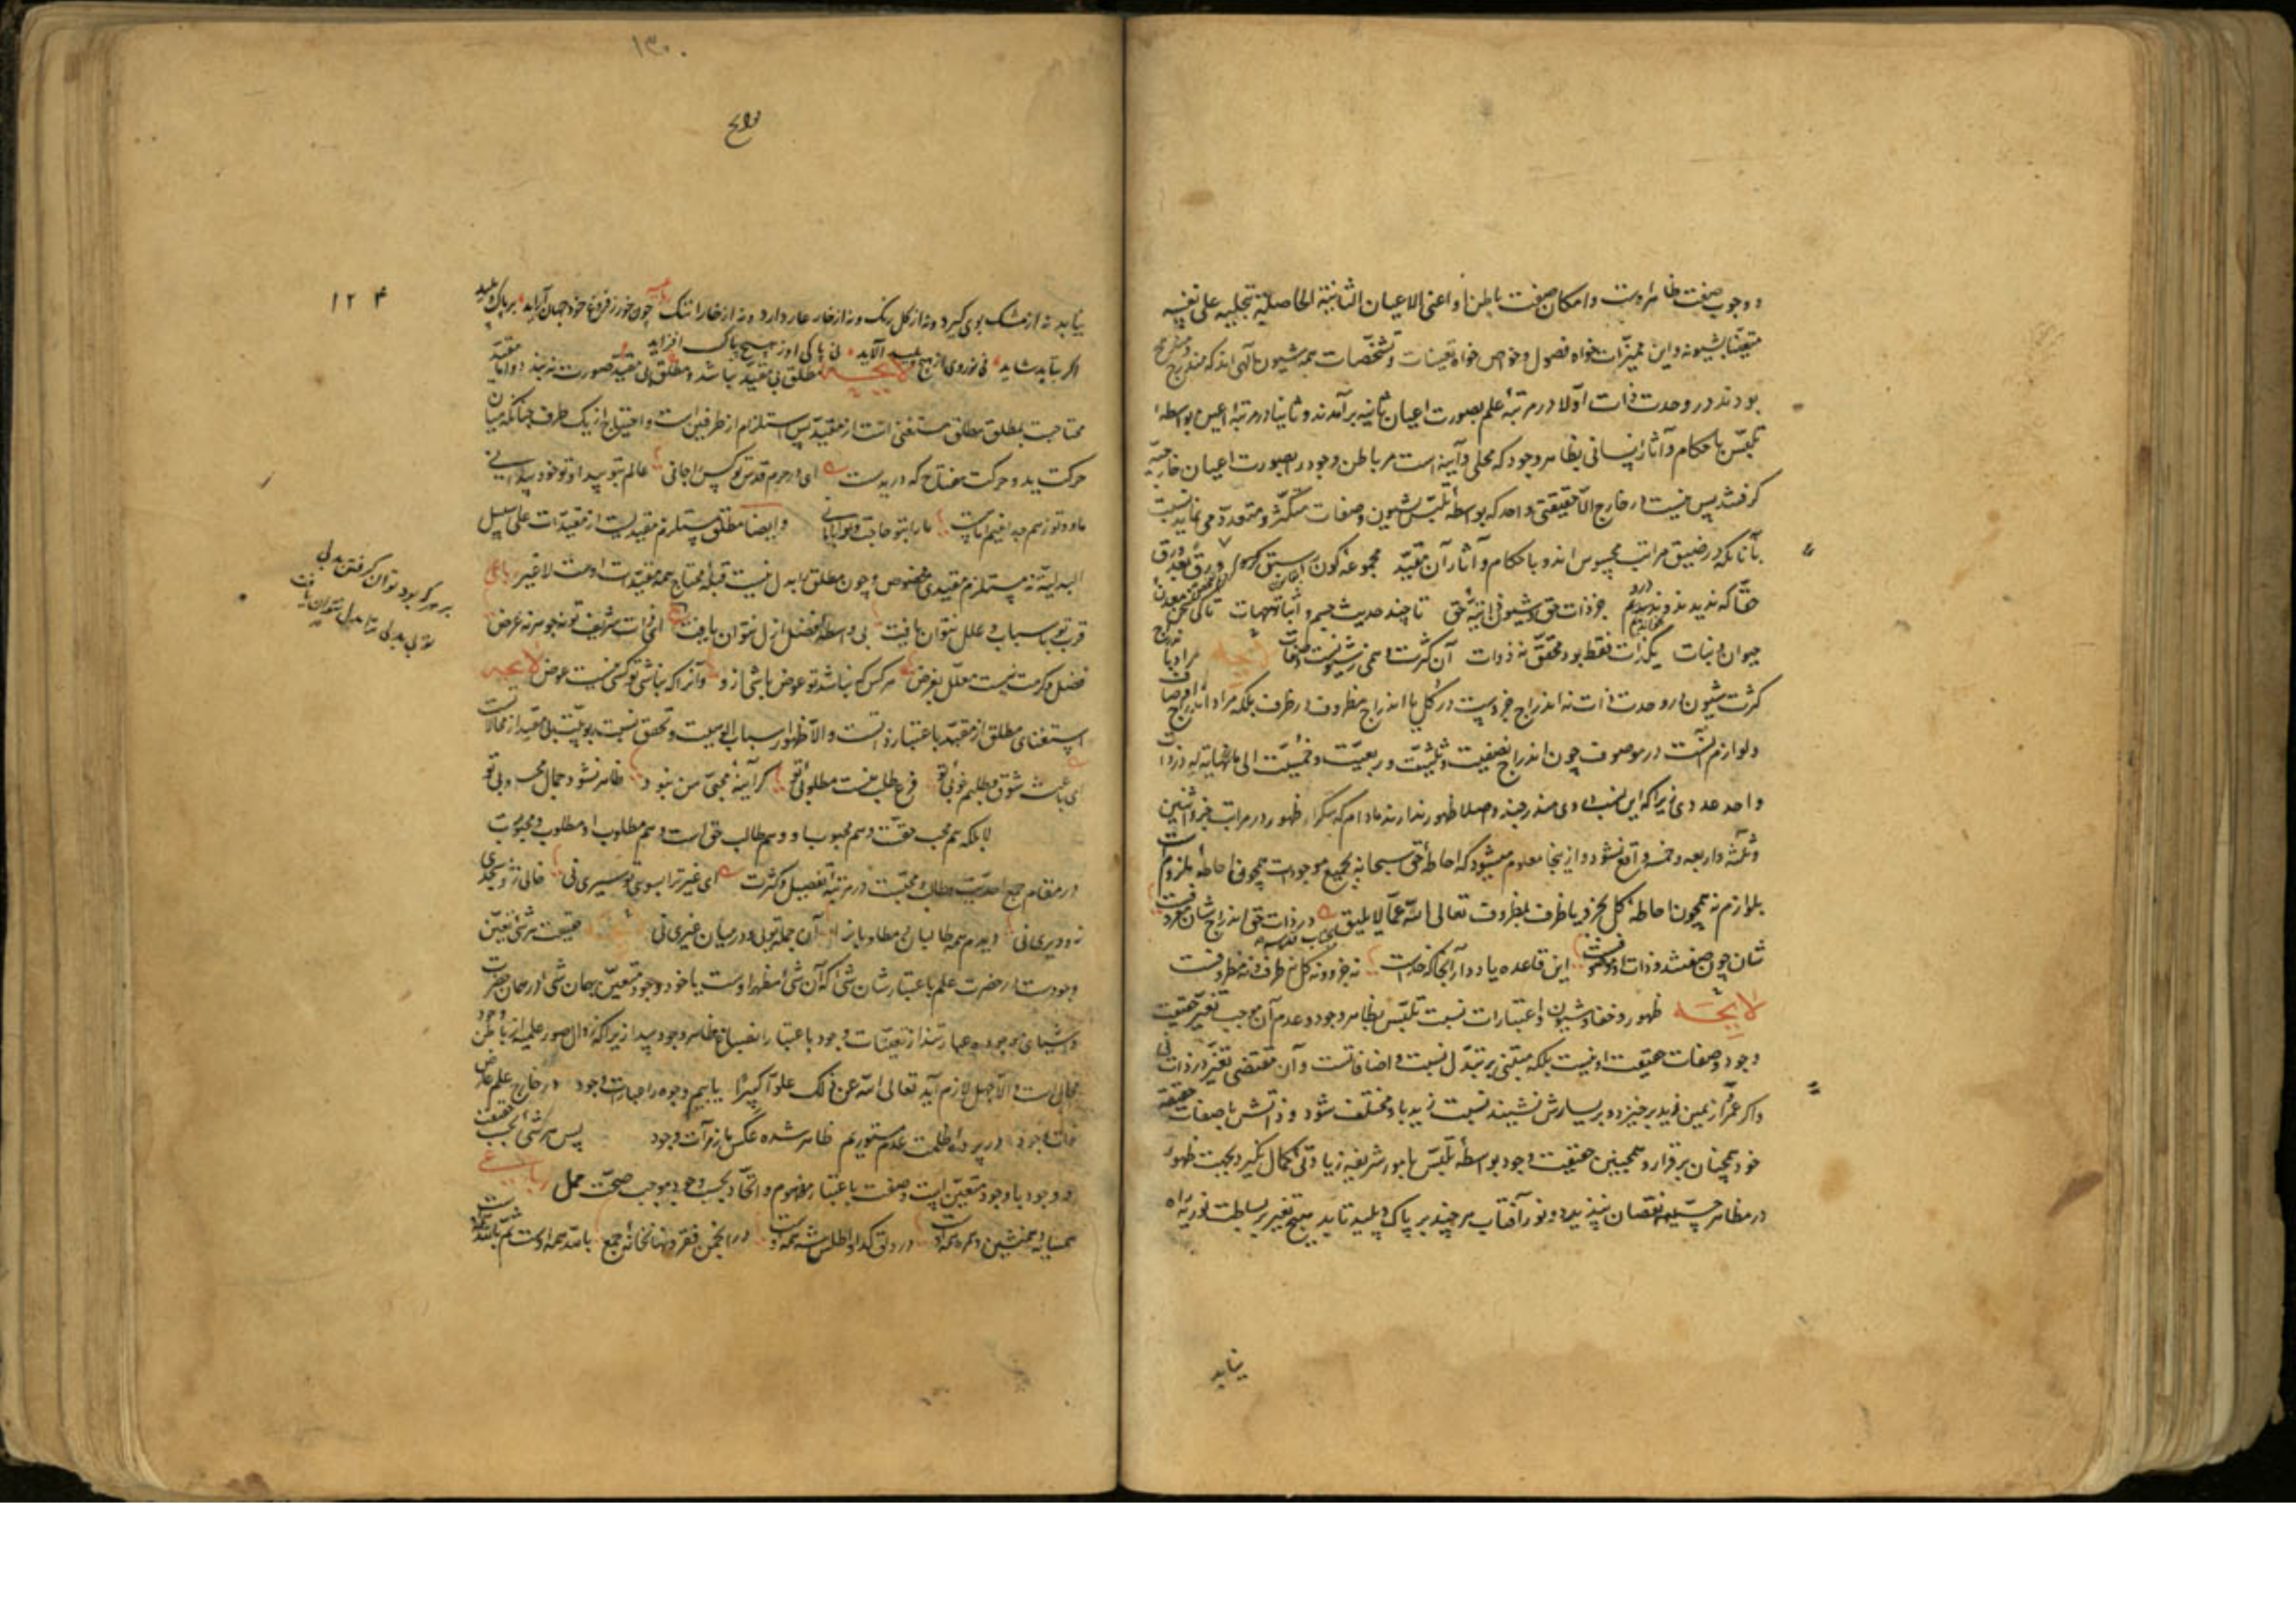 ووجوب صفت ظاهر اوست وامکان صفت باطن او اعنی الاعیان الثابتة الحاصلیة بتجلیه علی نفسه
متعینا بشیونه واین ممیزات خواه فصول وخواص خواه تعینات وتشخصات همه شیون الهی اند که مندرج
بودند در وحدت ذات اولا در مرتبهٔ علم بصورت اعیان ثابته برآمدند وثانیا در مرتبه عین بواسطه
تلبس باحکام وآثار ایشانی بظاهر وجود که مجلی وآینه است مر باطن وجود را بصورت اعیان خارجیه
گرفتند پس نیست در خارج الا حقیقتی واحد که بواسطهٔ تلبس بشیون وصفات متکثر ومتعدد می نماید نسبت
بآنانکه در ضیق مراتب محبوس اند و باحکام وآثار آن مقید مجموعه کون را سبق کردیم ورق بعد ورق
حقا که ندیدیم ونخواندیم درو جز ذات حق وشیون ذاتیهٔ حق تا چند حدیث جسم وابعاد وجهات تا کی سخن معدن
حیوان ونبات یکذات فقط بود محقق نه ذوات این کثرت وهمی ز شیونست وصفات لایحه مراد باندراج
کثرت شیون در وحدت ذات نه اندراج جزوست در کل یا اندراج مظروف در ظرف بلکه مراد اندراج اوصاف
ولوازمست در موصوف چون اندراج نصفیت وثلثیت وربعیت وخمسیت الی ما لا نهایة له در ذات
واحد عددی زیرا که این نسب در وی مندرجند واصلا ظهور ندارند مادام که بتکرار ظهور در مراتب جزو اثنین
وثلثه واربعه وخمسه واقع نشود واز ینجا معلوم میشود که احاطهٔ حق سبحانه بجمیع موجودات همچون احاطه ملزوم
بلوازم نه همچون احاطهٔ کل بجزو یا ظرف بمظروف تعالی الله عما لا یلیق بجناب قدسه در ذات حق اندراج شان معروفست
شان چون صفتند وذات او موصوفست این قاعده یاد دار آنجا که خداست نه جزو ونه کل نه ظرف ونه مظروفست
لایحه ظهور وخفاء شیون واعتبارات نسبت تلبس بظاهر وجود وعدم آن موجب تغیر حقیقت
وجود وصفات حقیقت او نیست بلکه مبتنی بر تبدل نسب واضافاتست وآن مقتضی تغیر در ذات نی
واگر عمر از یمین زید برخیزد وبر یسارش نشیند نسبت زید باو مختلف شود وذاتش باصفات حقیقیه
خود همچنان بر قرار وهمچنین حقیقت وجود بواسطهٔ تلبس بامور شریفه زیادتی کمال نگیرد وبجهت ظهور
در مظاهر خسیسه نقصان نپذیرد ونور آفتاب هر چند بر پاک وپلید تابد هیچ تغیر ببساطت نوریت راه
نیابد
۱۳۰
لوایح
۱۲۴
نیابد نه از مشک بوی گیرد ونه از گل رنگ ونه از خار عار دارد ونه از خارا ننگ رباعیه چون خور ز فروغ خود جهان آراید بر پاک وپلید
اگر بتابد شاید نی نوروی از هیچ پلید آلاید نی پاکی او ز هیچ پاک افزاید
لایحه مطلق بی مقید نباشد ومطلق بی مقید صورت نه بندد واما مقید
محتاجست بمطلق ومطلق مستغنی است از مقید پس استلزام از طرفین است واحتیاج از یک طرف چنانکه میان
حرکت ید وحرکت مفتاح که در یدست ای در حرم قدس تو کس را جا نی عالم بتو پیدا وتو خود پیدا نی
ما وتو زهم جدا نئیم اما هست ما را بتو حاجت وترا با ما نی وایضا مطلق مستلزم مقید یست از مقیدات علی سبیل
البدلیة نه مستلزم مقیدی مخصوص وچون مطلق را بدل نیست قبله محتاج همه مقیدات اوست لا غیر رباعی
قرب تو باسباب وعلل نتوان یافت بی واسطه فضل ازل نتوان یافت
بر هر که بود توان گرفتن بدلی
تو بی بدلی ترا بدل نتوان یافت
ای ذات شریف تو نه جوهر نه عرض
فضل وکرمت نیست معلل بغرض هر کس که نباشد تو عوض باشی ازو وآنرا که نباشی تو کسی نیست عوض لایحه
استغنای مطلق از مقید باعتبار ذاتست والا ظهور اسباب الوهیت وتحقق نسبت ربوبیت بی مقید از محالاتست
ای باعث شوق وطلبم خوبی تو فرع طلب منست مطلوبی تو گر آینهٔ محبی من نبود ظاهر نشود جمال محبوبی تو
لا بلکه هم محب حقست وهم محبوب او وهم طالب حق است وهم مطلوب او مطلوب ومحبوبست
در مقام جمع احدیت وطالب ومحبست در مرتبهٔ تفصیل وکثرت ای غیر ترا بسوی تو سیری نی خالی ز تو مسجدی
نه ودیری نی دیدم همه طالبان ومطلوبانرا آن جمله توئی ودر میان غیری نی لایحه حقیقت هر شی تعین
وجودست در حضرت علم باعتبار شانی که آن شی مظهر اوست یا خود وجود متعین بهمان شان در همان حضرت
واشیای موجوده عبارتند از تعینات وجود باعتبار انصباغ ظاهر وجود زیرا که زوال صور علمیه از باطن وجود
محال است والا جهل لازم آید تعالی الله عن ذلک علوا کبیرا ماییم وجوه واعتبارات وجود در خارج وعلم عارض
ذات وجود در پردهٔ ظلمت عدم مستوریم ظاهر شده عکس ما ز مرآت وجود پس هر شی بحسب حقیقت
ووجود یا وجود متعین است وصفت باعتبار مفهوم واتحاد بحسب وجود موجب صحت حمل رباعی
همسایه وهمنشین وهمره همه اوست در دلق گدا واطلس شه همه اوست در انجمن فرق ونهانخانهٔ جمع بالله همه اوست ثم بالله همه اوست